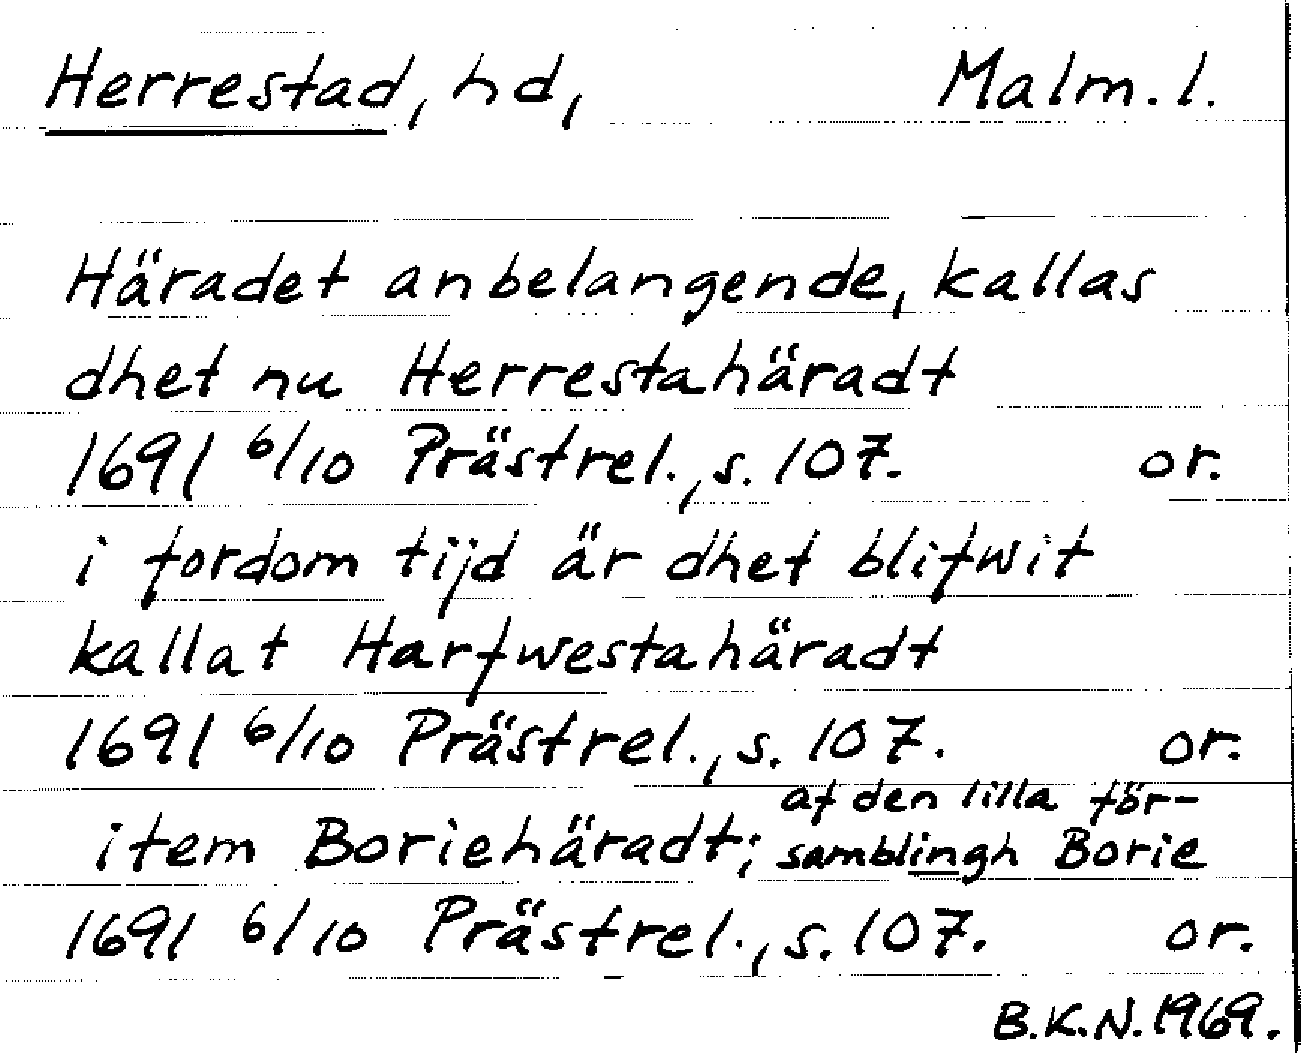 Herrestad, hd, Malm. l.
Häradet anbelangende, kallas
dhet nu Herrestahäradt
1691 6/10 Prästrel., s. 107. or.
i fordom tijd är dhet blifwit
kallat Harfwestahäradt
1691 6/10 Prästrel., s. 107. or.
item Boriehäradt; af den lilla för-
samblingh Borie
1691 6/10 Prästrel., s. 107. or.
B.K.N. 1969.